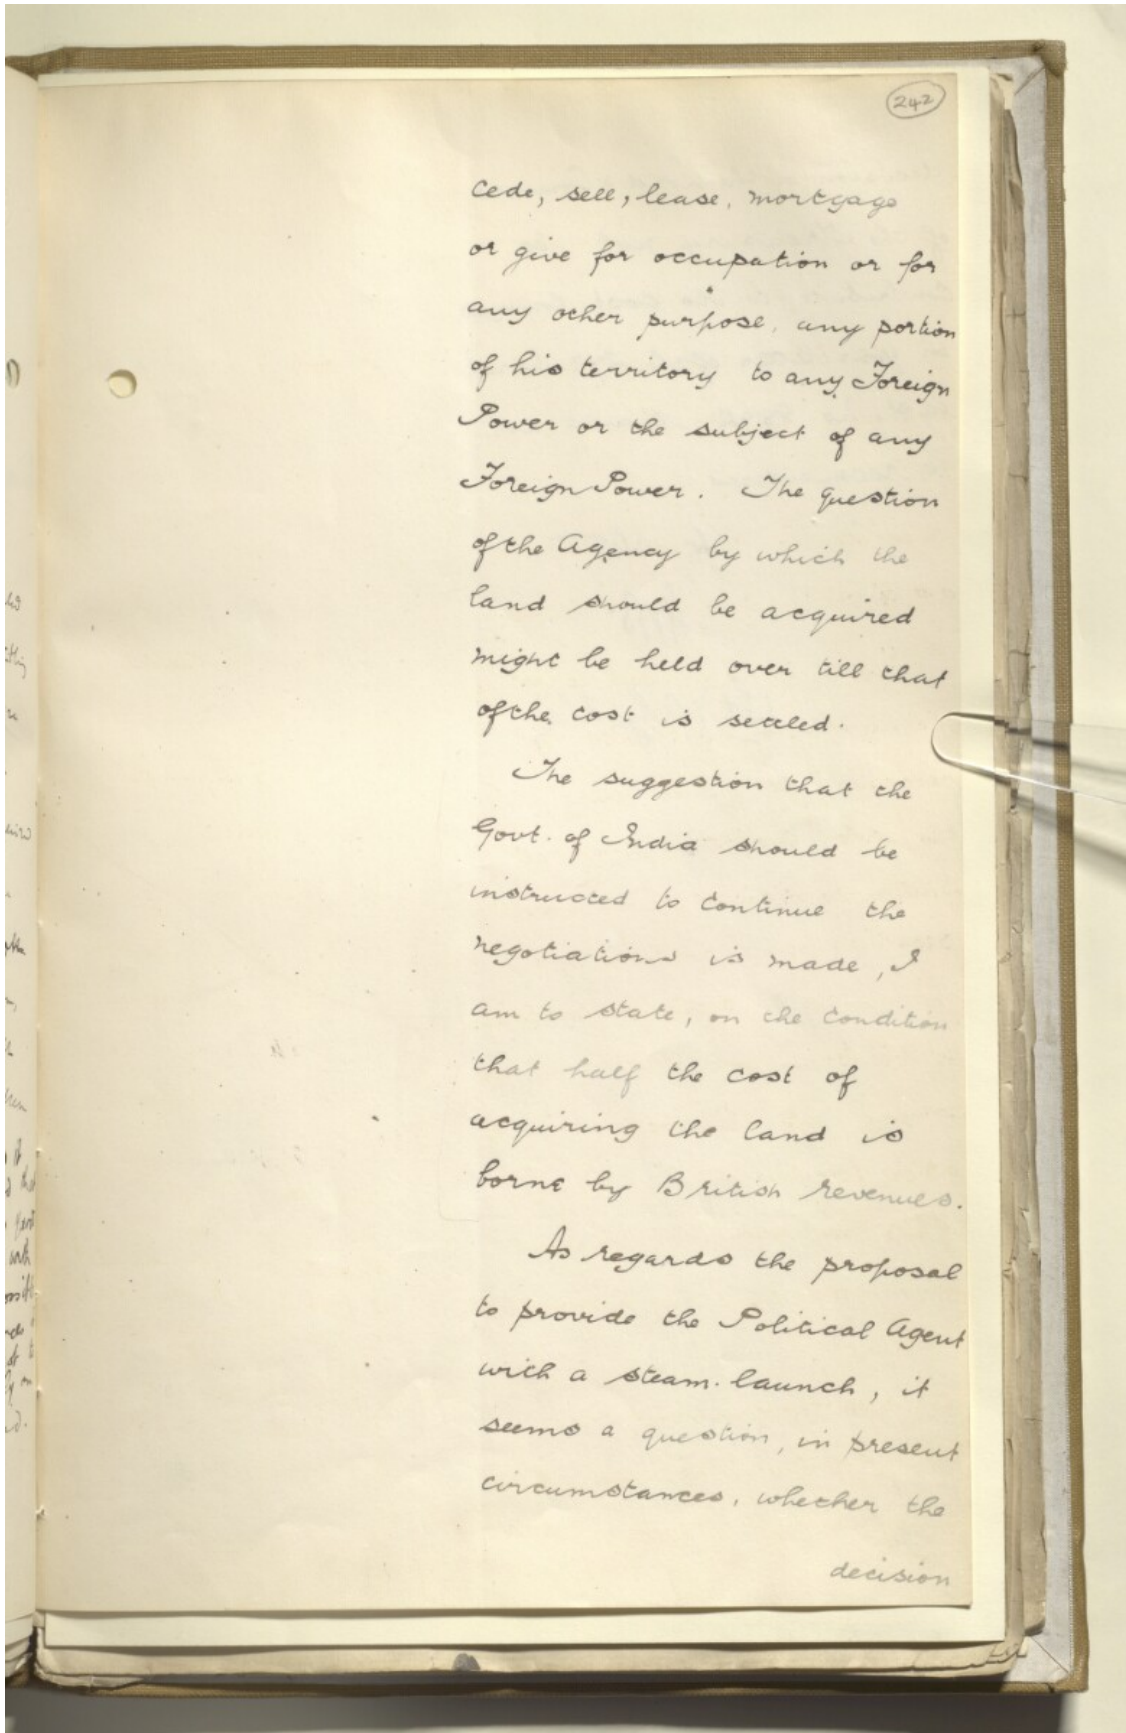 242
Cede, sell, lease, mortgage
or give for occupation or for
any other purpose, any portion
of his territory to any Foreign
Power or the subject of any
Foreign Power. The question
of the Agency by which the
land should be acquired
might be held over till that
of the cost is settled.
The suggestion that the
Govt. of India should be
instructed to continue the
negotiations is made, I
am to state, on the condition
that half the cost of
acquiring the land is
borne by British revenues.
As regards the proposal
to provide the Political Agent
with a steam-launch, it
seems a question, in present
circumstances, whether the
decision